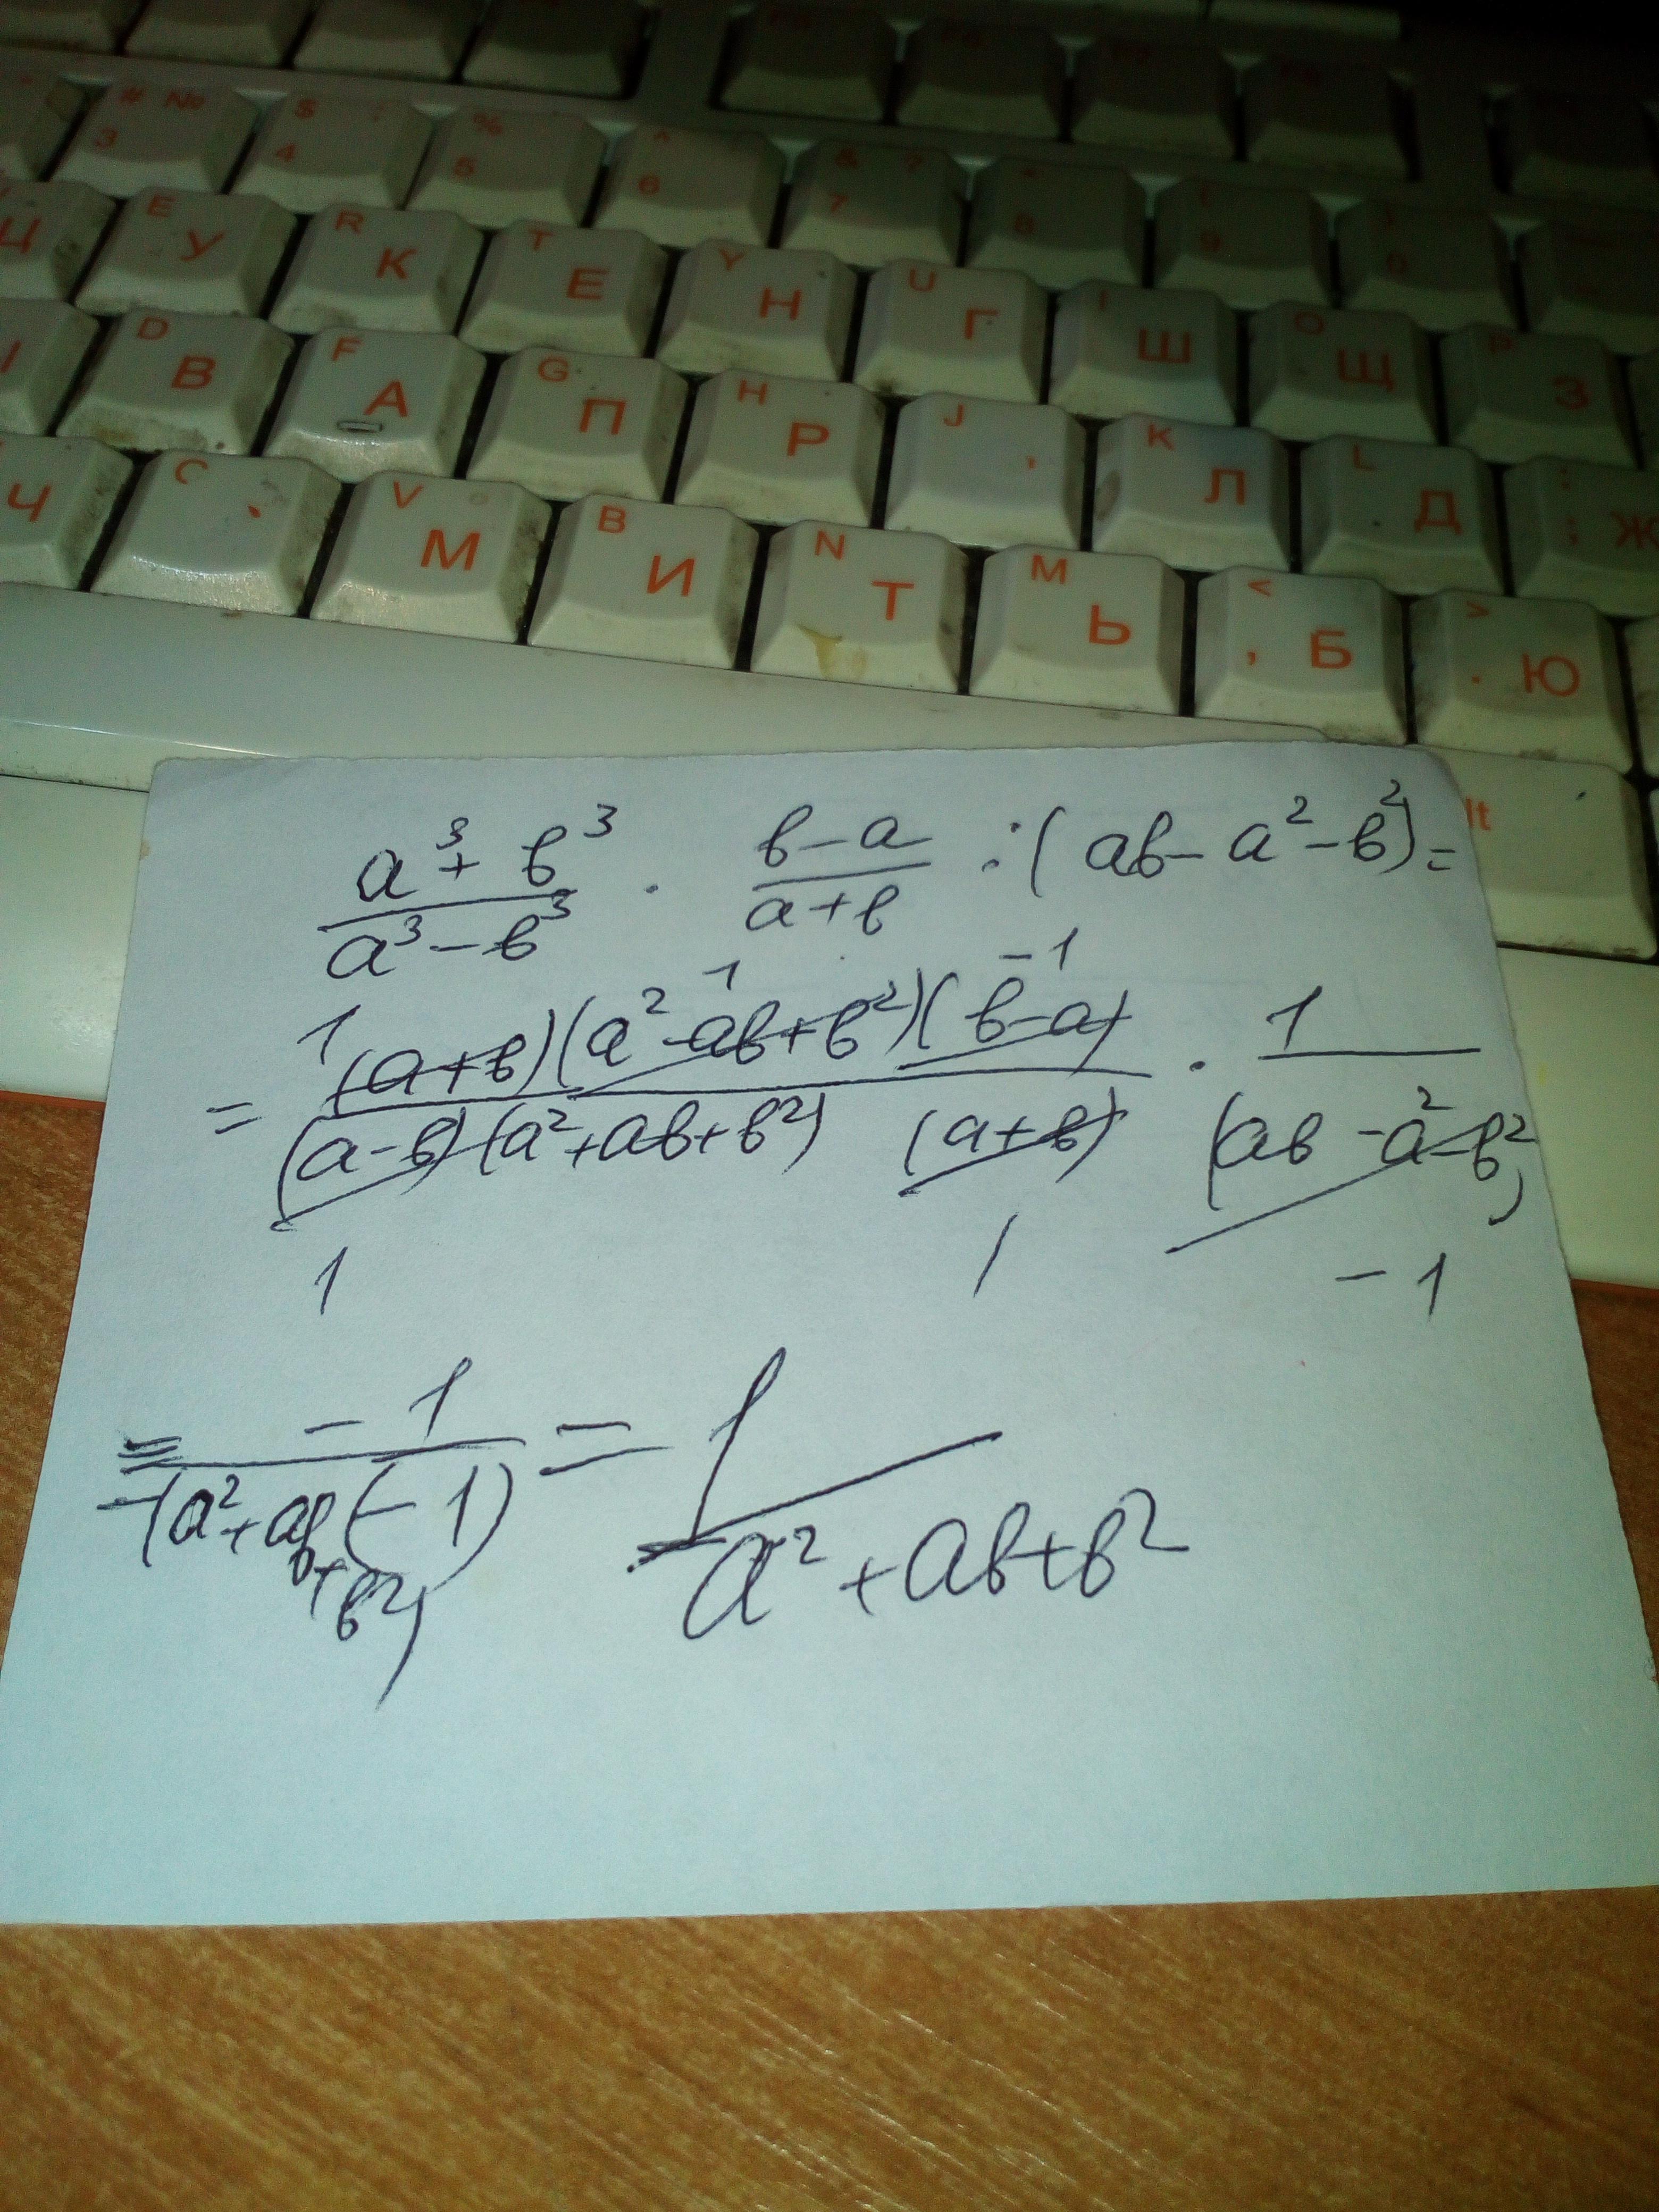 # № $ ; % ^ & ? * ( )
3 4 5 6 7 8 9 0
Ц E У R К T Е Y Н U Г I Ш O Щ P З
D В F А G П H Р J K Л L Д : ; Ж
Ч C V М B И N Т M Ь < , Б > . Ю
lt
a³ + b³ / a³ − b³ · b − a / a + b : (ab − a² − b²) =
1 1 −1
= (a+b)(a² − ab + b²)(b−a) / (a−b)(a² + ab + b²) (a+b) · 1 / (ab − a² − b²)
1 1 −1
= −1 / (a² + ab + b²)(−1) = 1 / a² + ab + b²